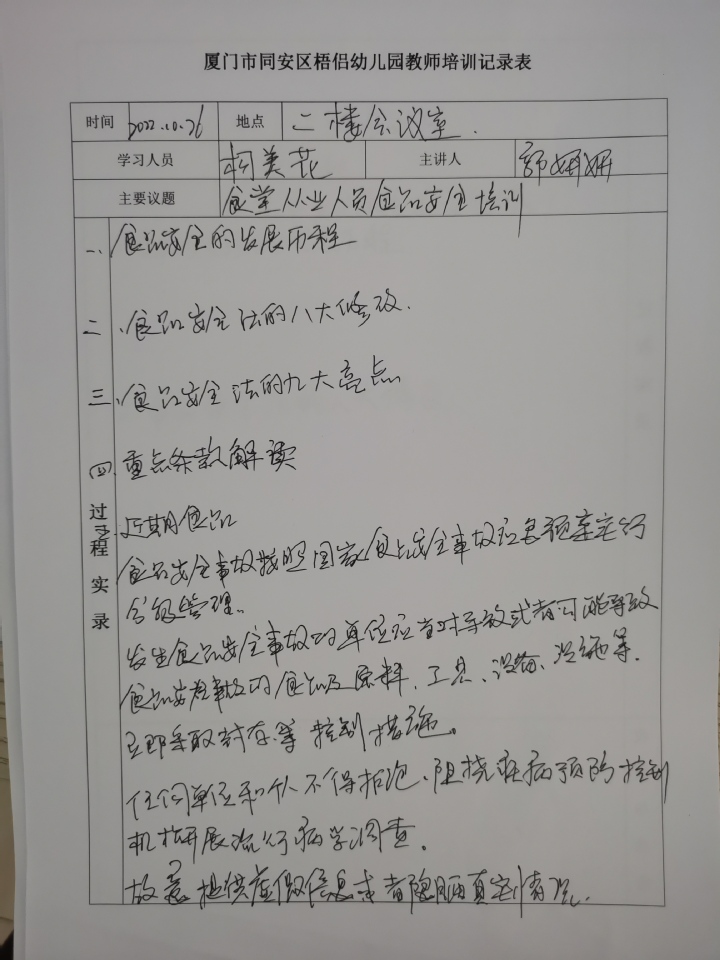 厦门市同安区梧侣幼儿园教师培训记录表
时间 2022.10.26 地点 二楼会议室.
学习人员 柯美花 主讲人 郭妍妍
主要议题 食堂从业人员食品安全培训
一、食品安全的发展历程
二、食品安全法的八大修改.
三、食品安全法的九大亮点
四 重点条款解读
过程实录
近期食品
食品安全事故按照国家食品安全事故应急预案实行
分级管理。
发生食品安全事故的单位应当对导致或者可能导致
食品安全事故的食品及原料、工具、设备、设施等.
立即采取封存等控制措施。
任何单位和个人不得拒绝、阻挠疾病预防控制
机构开展流行病学调查.
故意提供虚假信息或者隐瞒真实情况.